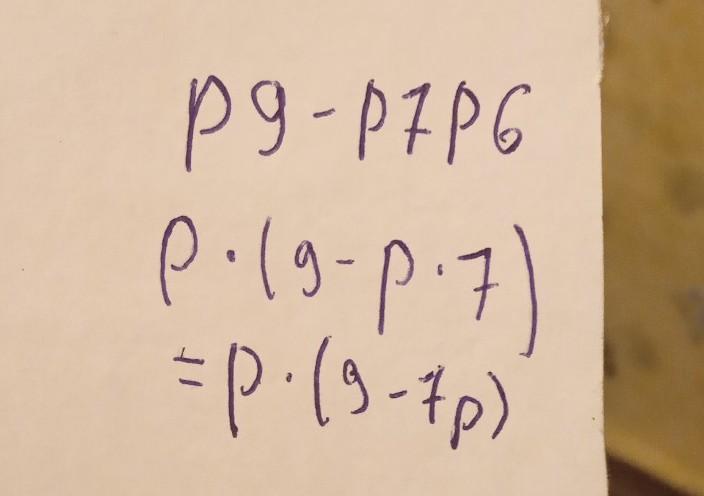 p9-p7p6
p·(9-p·7)
=p·(9-7p)